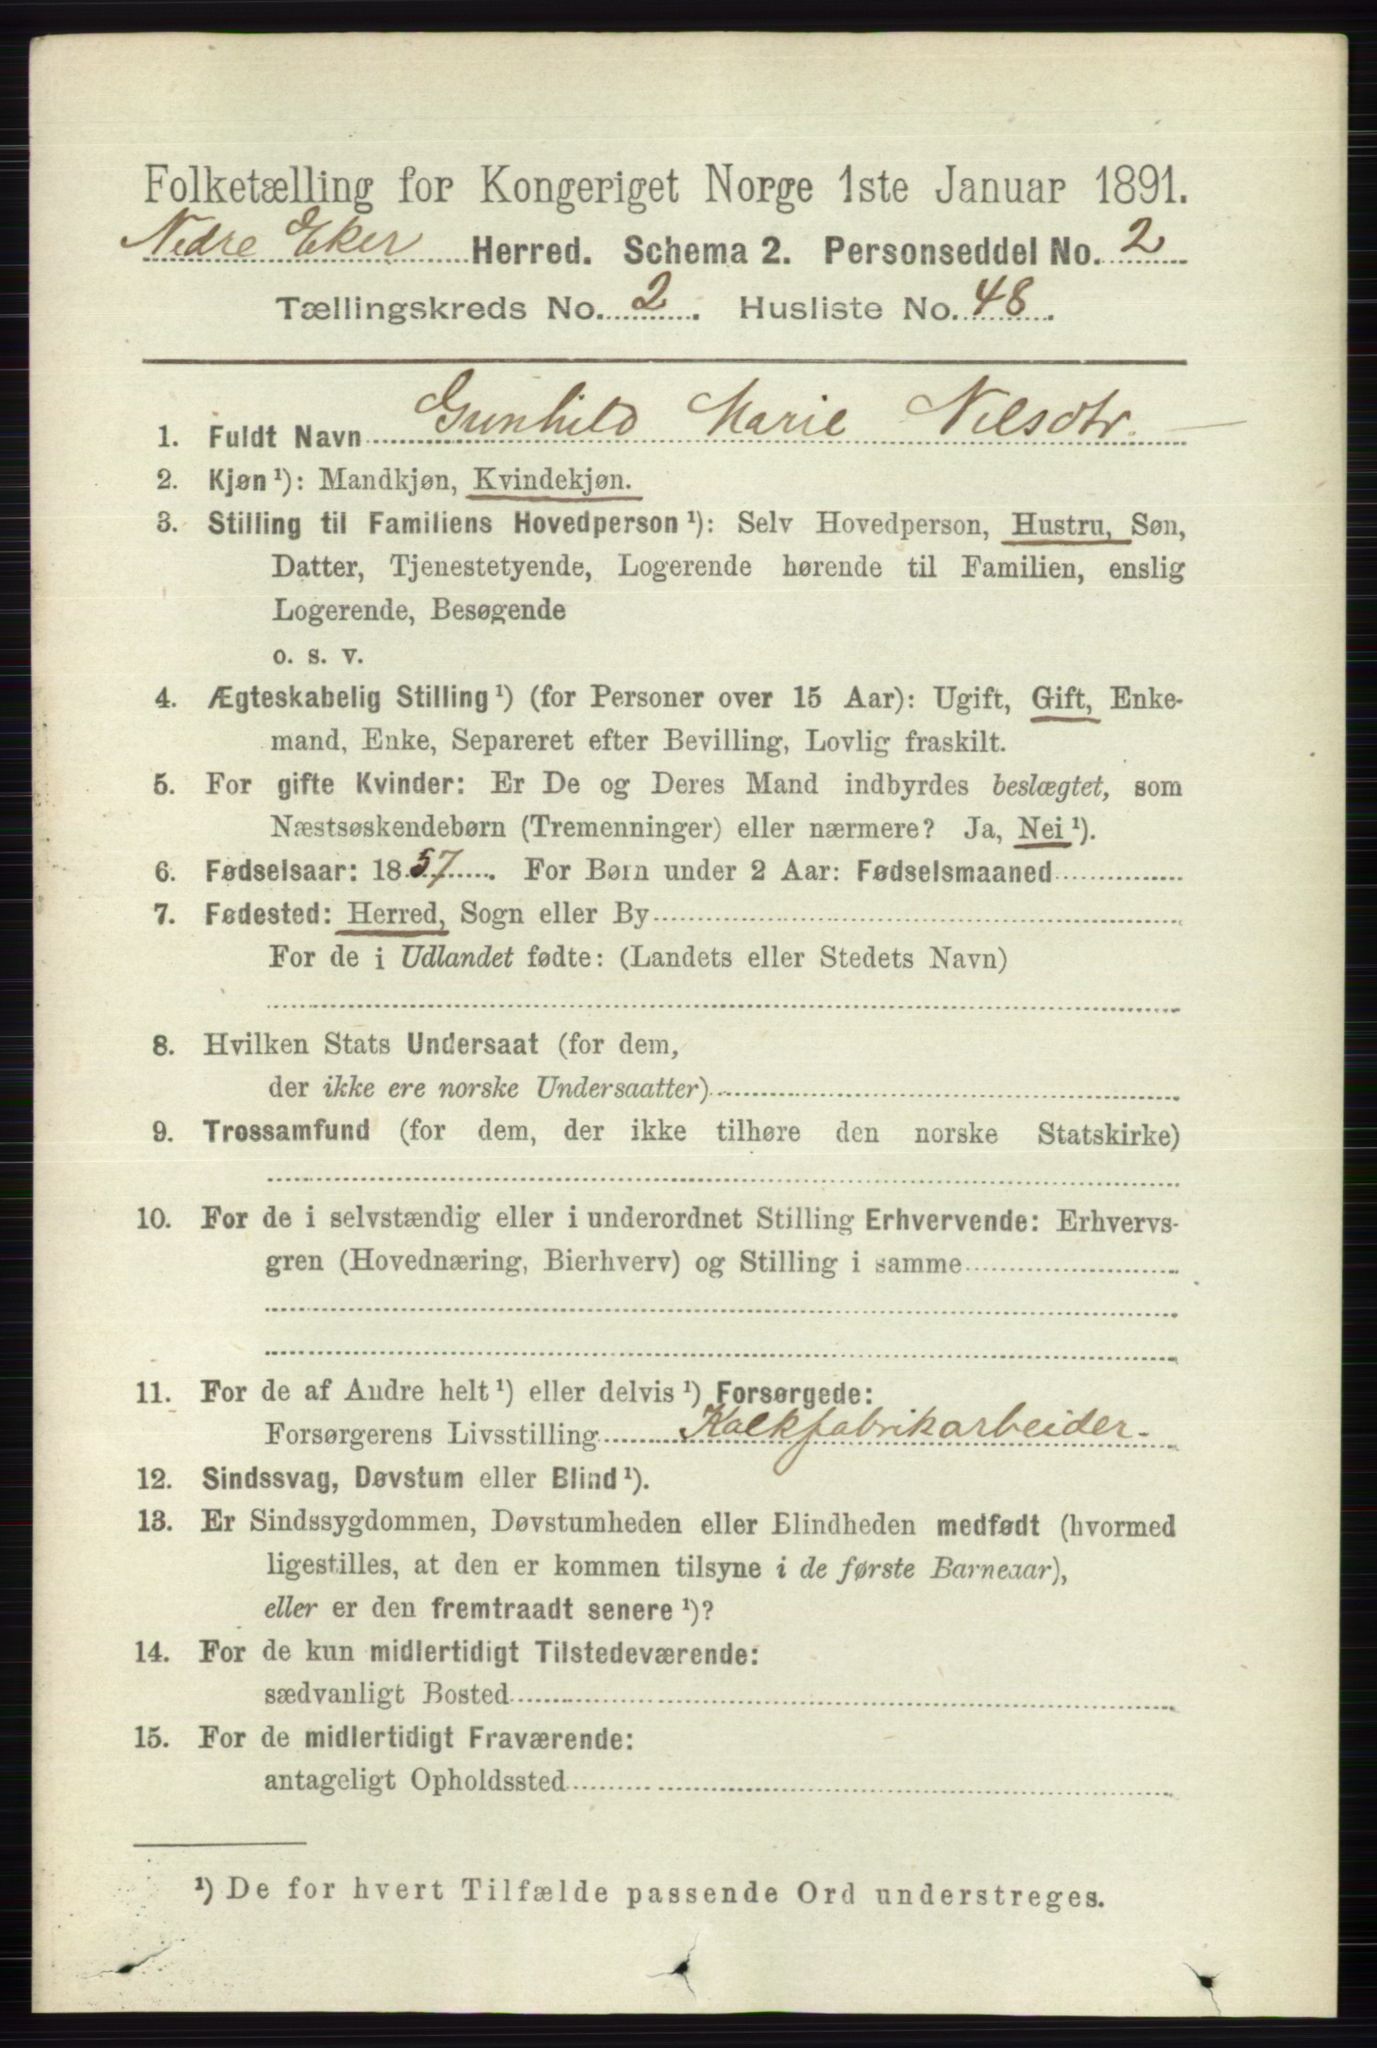 Folketælling for Kongeriget Norge 1ste Januar 1891.
Nedre Eker Herred. Schema 2. Personseddel No. 2
Tællingskreds No. 2. Husliste No. 48.
1. Fuldt Navn Gunhild Marie Nilsdtr.
2. Kjøn¹): Mandkjøn, Kvindekjøn.
3. Stilling til Familiens Hovedperson¹): Selv Hovedperson, Hustru, Søn,
Datter, Tjenestetyende, Logerende hørende til Familien, enslig
Logerende, Besøgende
o. s. v.
4. Ægteskabelig Stilling¹) (for Personer over 15 Aar): Ugift, Gift, Enke-
mand, Enke, Separeret efter Bevilling, Lovlig fraskilt.
5. For gifte Kvinder: Er De og Deres Mand indbyrdes beslægtet, som
Næstsøskendebørn (Tremenninger) eller nærmere? Ja, Nei¹).
6. Fødselsaar: 1857. For Børn under 2 Aar: Fødselsmaaned
7. Fødested: Herred, Sogn eller By
For de i Udlandet fødte: (Landets eller Stedets Navn)
8. Hvilken Stats Undersaat (for dem,
der ikke ere norske Undersaatter)
9. Trossamfund (for dem, der ikke tilhøre den norske Statskirke)
10. For de i selvstændig eller i underordnet Stilling Erhvervende: Erhvervs-
gren (Hovednæring, Bierhverv) og Stilling i samme
11. For de af Andre helt¹) eller delvis¹) Forsørgede:
Forsørgerens Livsstilling Kalkfabrikarbeider.
12. Sindssvag, Døvstum eller Blind¹).
13. Er Sindssygdommen, Døvstumheden eller Blindheden medfødt (hvormed
ligestilles, at den er kommen tilsyne i de første Barneaar),
eller er den fremtraadt senere¹)?
14. For de kun midlertidigt Tilstedeværende:
sædvanligt Bosted
15. For de midlertidigt Fraværende:
antageligt Opholdssted
¹) De for hvert Tilfælde passende Ord understreges.